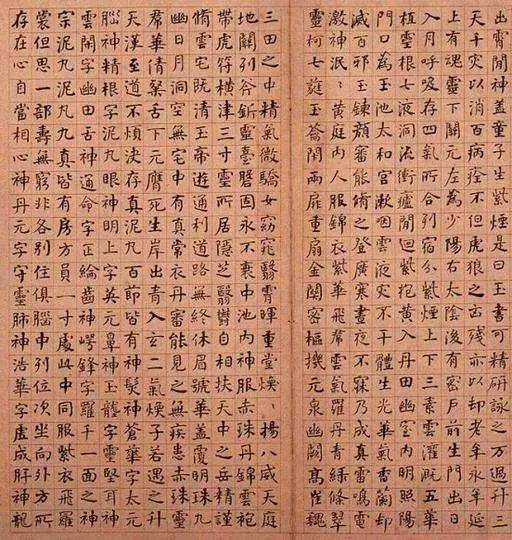 出霄閒神蓋童子生紫煙是曰玉書可精研詠之万過升三
天千灾以消百病痊不但虎狼之凶残亦以却老年永年延
上有魂靈下關元左為少陽右太陰後有密戶前生門出日
入月呼吸存四氣所合列宿分紫煙上下三素雲灌溉五華
植靈根七液洞流衝廬閒迴紫抱黃入丹田幽室内明照陽
門口為玉池太和宮漱咽靈液灾不干體生光華氣香蘭却
滅百邪玉鍊顔審能脩之登廣寒晝夜不寐乃成真雷鳴電
激神泯〻黃庭内人服錦衣紫華飛帬雲氣羅丹青綠條翠
靈柯七蕤玉籥閇兩扉重扇金關密樞機元泉幽闕高崔巍
三田之中精氣微驕女窈窕翳霄暉重堂煥〻揚八威天庭
地關列斨靈臺盤固永不衰中池内神服赤珠丹錦雲袍
帶虎符横津三寸靈所居隱芝翳鬱自相扶天中之岳精謹
脩雲宅既清玉帝遊通利道路無終休眉號華蓋覆明珠九
幽日月洞空無宅中有真常衣丹審能見之無疾患赤珠靈
帬華蒨粲舌下元膺死生岸出青入玄二氣煥子若遇之升
天漢至道不煩決存真泥丸百節皆有神髮神蒼華字太元
腦神精根字泥丸眼神明上字英元鼻神玉壟字靈堅耳神
空閑字幽田舌神通命字正綸齒神崿鋒字羅千一面之神
宗泥丸泥丸九真皆有房方員一寸處此中同服紫衣飛羅
裳但思一部壽無窮非各別住俱腦中列位次坐向外方所
存在心自當相心神丹元字守靈肺神浩華字虚成肝神龍